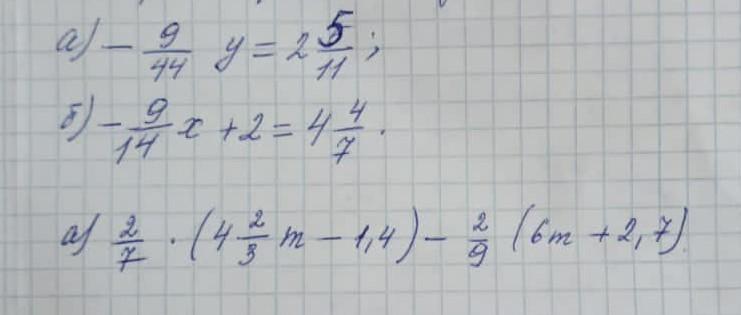 а) - 9/44 y = 2 5/11;
б) - 9/14 x + 2 = 4 4/7.
а) 2/7 · (4 2/3 m - 1,4) - 2/9 (6m + 2,7)